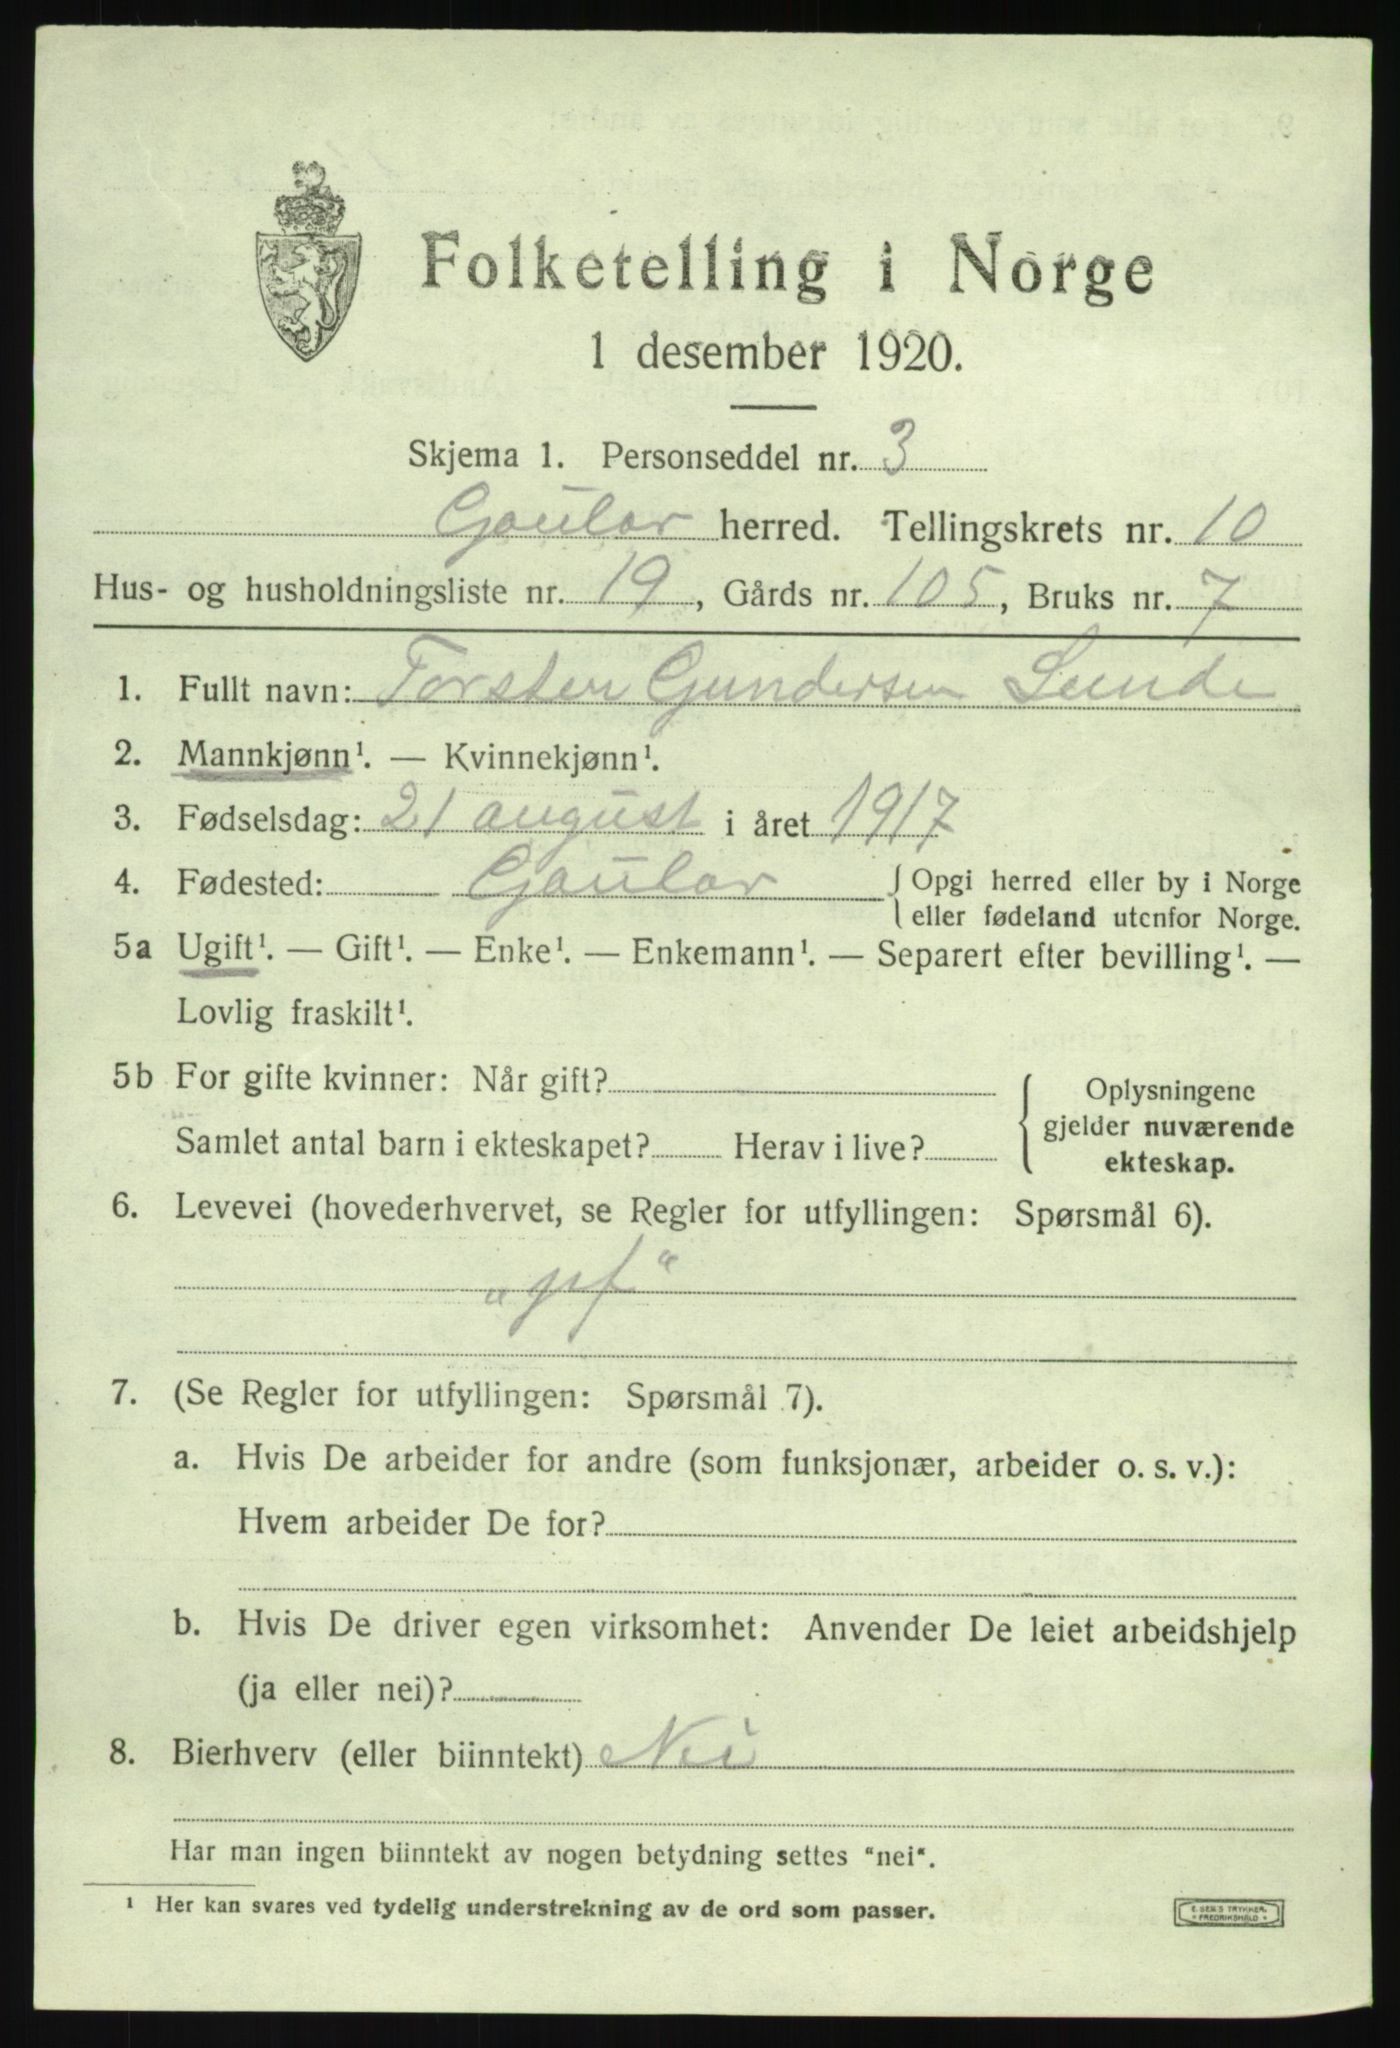 Folketelling i Norge
1 desember 1920.
Skjema 1. Personseddel nr. 3
Gaular herred. Tellingskrets nr. 10
Hus- og husholdningsliste nr. 19, Gårds nr. 105, Bruks nr. 7
1. Fullt navn: Torsten Gundersen Lunde
2. Mannkjønn¹. — Kvinnekjønn¹.
3. Fødselsdag: 21 august i året 1917
4. Fødested: Gaular { Opgi herred eller by i Norge
eller fødeland utenfor Norge.
5a Ugift¹. — Gift¹. — Enke¹. — Enkemann¹. — Separert efter bevilling¹. —
Lovlig fraskilt¹.
5b For gifte kvinner: Når gift?
Samlet antal barn i ekteskapet? Herav i live?
{ Oplysningene
gjelder nuværende
ekteskap.
6. Levevei (hovederhvervet, se Regler for utfyllingen: Spørsmål 6).
„pf“
7. (Se Regler for utfyllingen: Spørsmål 7).
a. Hvis De arbeider for andre (som funksjonær, arbeider o. s. v.):
Hvem arbeider De for?
b. Hvis De driver egen virksomhet: Anvender De leiet arbeidshjelp
(ja eller nei)?
8. Bierhverv (eller biinntekt) Nei
Har man ingen biinntekt av nogen betydning settes "nei".
¹ Her kan svares ved tydelig understrekning av de ord som passer.
E. SEM'S TRYKKERI
FREDRIKSHALD